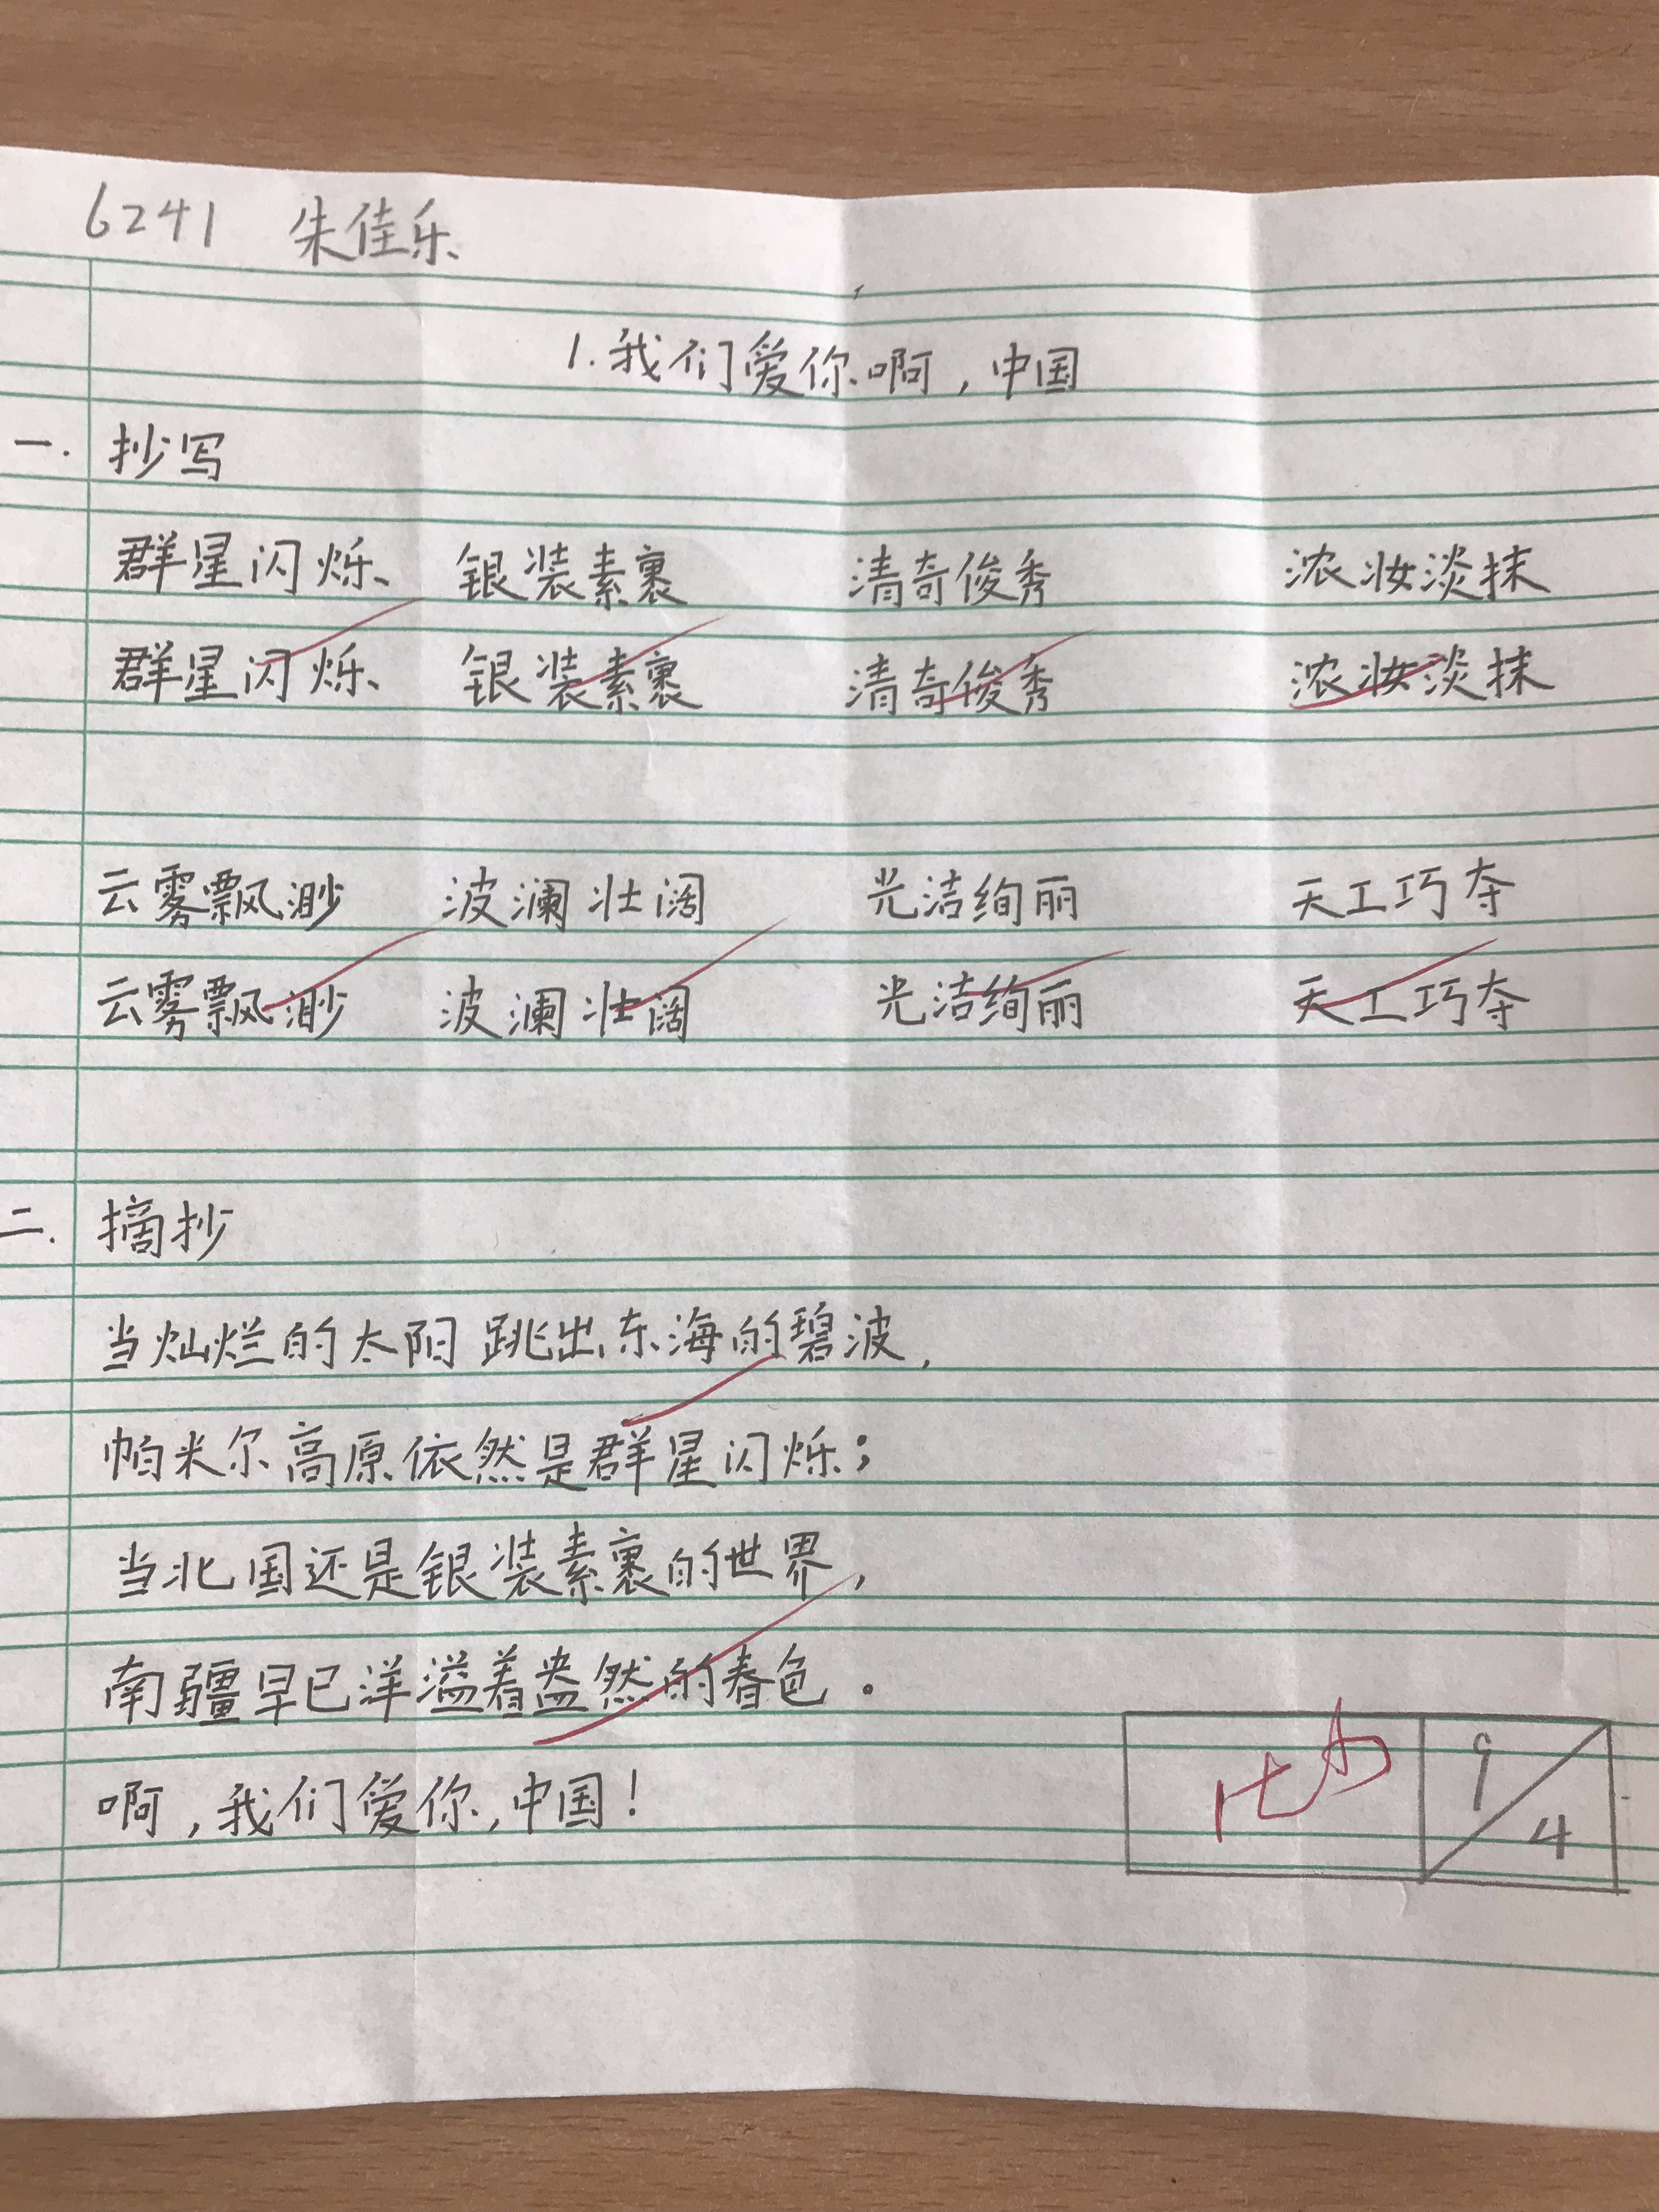 6241 朱佳乐
1.我们爱你啊，中国
一. 抄写
群星闪烁、 银装素裹 清奇俊秀 浓妆淡抹
群星闪烁、 银装素裹 清奇俊秀 浓妆淡抹
云雾飘渺 波澜壮阔 光洁绚丽 天工巧夺
云雾飘渺 波澜壮阔 光洁绚丽 天工巧夺
二. 摘抄
当灿烂的太阳跳出东海的碧波，
帕米尔高原依然是群星闪烁；
当北国还是银装素裹的世界，
南疆早已洋溢着盎然的春色。
啊，我们爱你，中国！
9/4